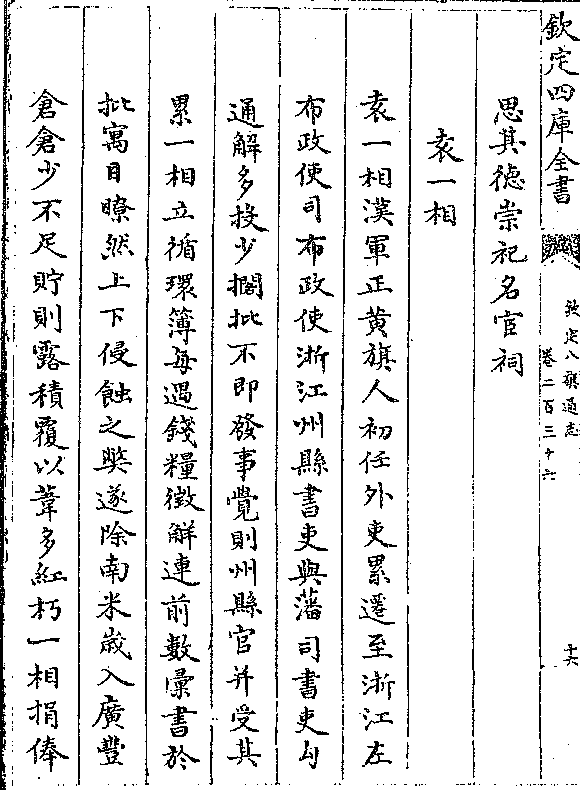 欽定四庫全書
欽定八旗通志
卷二百三十六
十六
思其德崇祀名宦祠
袁一相
袁一相漢軍正黄旗人初任外吏累遷至浙江左
布政使司布政使浙江州縣書吏與藩司書吏勾
通解多投少擱批不即發事覺則州縣官并受其
累一相立循環簿每遇錢糧徴解連前數彙書於
批寓目瞭然上下侵蝕之弊遂除南米歲入廣豐
倉倉少不足貯則露積覆以葦多紅朽一相捐俸